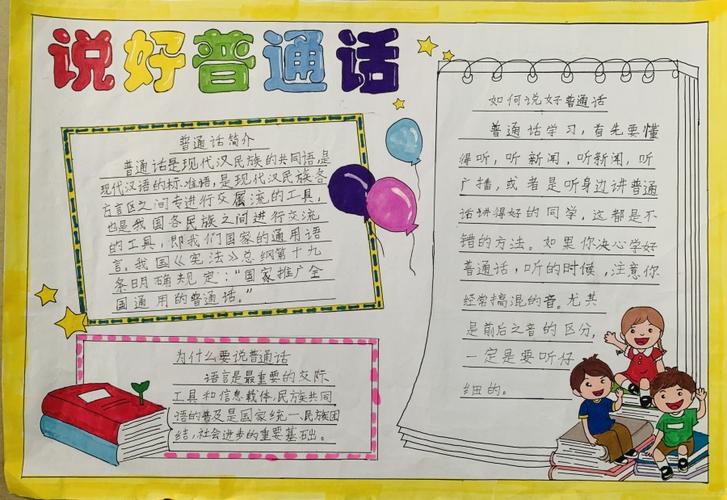 说好普通话
普通话简介
普通话是现代汉民族的共同语,是
现代汉语的标准语,是现代汉民族各
方言区之间专进行交属流的工具,
也是我国各民族之间进行交流
的工具,即我们国家的通用语
言。我国《宪法》总纲第十九
条明确规定:“国家推广全
国通用的普通话。”
为什么要说普通话
语言是最重要的交际
工具和信息载体,民族共同
语的普及是国家统一、民族团
结,社会进步的重要基础。
如何说好普通话
普通话学习,首先要懂
得听,听新闻,听新闻,听
广播,或者是听身边讲普通
话讲得好的同学,这都是不
错的方法。如果你决心学好
普通话,听的时候,注意你
经常搞混的音。尤其
是前后之音的区分,
一定是要听仔
细的。